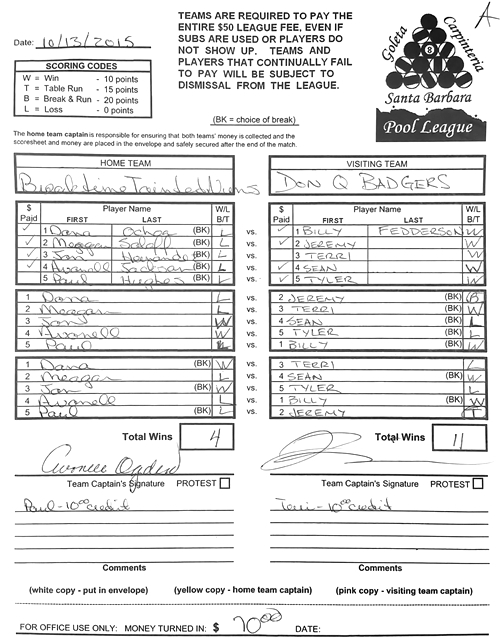 TEAMS ARE REQUIRED TO PAY THE
ENTIRE $50 LEAGUE FEE, EVEN IF
SUBS ARE USED OR PLAYERS DO
NOT SHOW UP. TEAMS AND
PLAYERS THAT CONTINUALLY FAIL
TO PAY WILL BE SUBJECT TO
DISMISSAL FROM THE LEAGUE.
A
Goleta
Carpinteria
8
Santa Barbara
Pool League
Date: 10/13/2015
SCORING CODES
W = Win - 10 points
T = Table Run - 15 points
B = Break & Run - 20 points
L = Loss - 0 points
(BK = choice of break)
The home team captain is responsible for ensuring that both teams' money is collected and the
scoresheet and money are placed in the envelope and safely secured after the end of the match.
HOME TEAM VISITING TEAM
Breaktime DON Q BADGERS
$ Paid Player Name FIRST LAST W/L B/T $ Paid Player Name FIRST LAST W/L B/T
1 Dana Ochoa (BK) L vs. 1 BILLY FEDDERSON W
2 Meagan (BK) L vs. 2 JEREMY W
3 Jon (BK) L vs. 3 TERRI W
4 Avonell Jackson (BK) L vs. 4 SEAN W
5 Paul Hughes (BK) L vs. 5 TYLER W
1 Dana L vs. 2 JEREMY (BK) B
2 Meagan L vs. 3 TERRI (BK) W
3 Jon W vs. 4 SEAN (BK) L
4 Avonell W vs. 5 TYLER (BK) L
5 Paul L vs. 1 BILLY (BK) W
1 Dana (BK) W vs. 3 TERRI L
2 Meagan L vs. 4 SEAN (BK) W
3 Jon (BK) W vs. 5 TYLER L
4 Avonell L vs. 1 BILLY (BK) W
5 Paul (BK) L vs. 2 JEREMY T
Total Wins 4 Total Wins 11
Team Captain's Signature PROTEST Team Captain's Signature PROTEST
Paul - 10.00 credit Terri - 10.00 credit
Comments Comments
(white copy - put in envelope) (yellow copy - home team captain) (pink copy - visiting team captain)
FOR OFFICE USE ONLY: MONEY TURNED IN: $ 70.00 DATE: